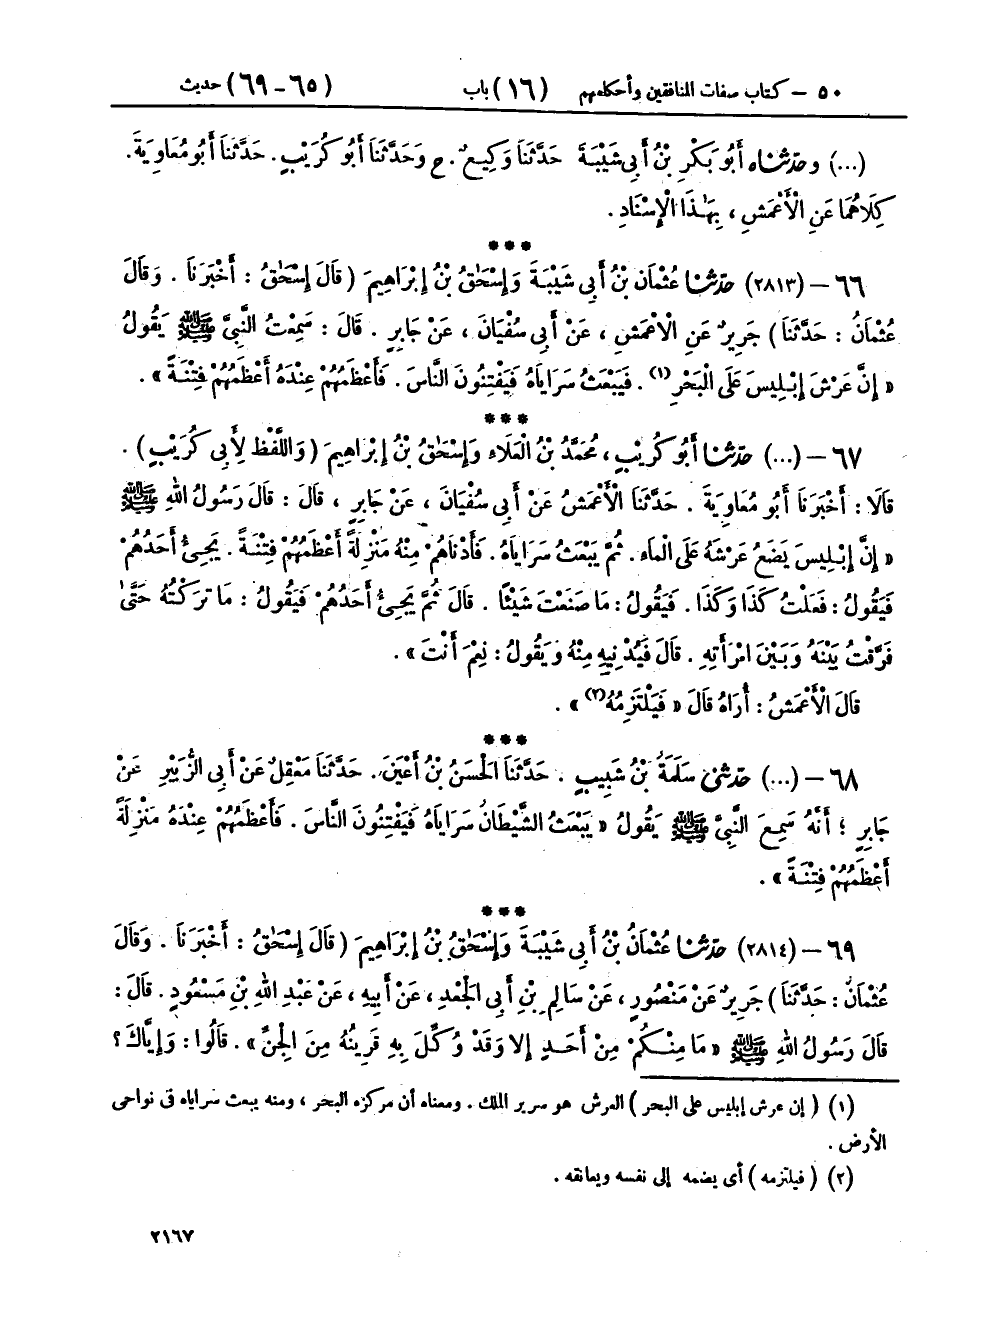 ٥٠ – كتاب صفات المنافقين وأحكامهم (١٦) باب (٦٥-٦٩) حديث
(...) وحدّثناه أَبُو بَكْرِ بْنُ أَبِي شَيْبَةَ حَدَّثَنَا وَكِيعٌ. ح وَحَدَّثَنَا أَبُو كُرَيْبٍ. حَدَّثَنَا أَبُو مُعَاوِيَةَ.
كِلَاهُمَا عَنِ الْأَعْمَشِ ، بِهَذَا الْإِسْنَادِ .
***
٦٦ – (٢٨١٣) حدّثنا عُثْمَانُ بْنُ أَبِي شَيْبَةَ وَإِسْحَٰقُ بْنُ إِبْرَاهِيمَ (قَالَ إِسْحَٰقُ : أَخْبَرَنَا . وَقَالَ
عُثْمَانُ : حَدَّثَنَا) جَرِيرٌ عَنِ الْأَعْمَشِ ، عَنْ أَبِي سُفْيَانَ ، عَنْ جَابِرٍ . قَالَ : سَمِعْتُ النَّبِيَّ ﷺ يَقُولُ
« إِنَّ عَرْشَ إِبْلِيسَ عَلَى الْبَحْرِ(١) . فَيَبْعَثُ سَرَايَاهُ فَيَفْتِنُونَ النَّاسَ . فَأَعْظَمُهُمْ عِنْدَهُ أَعْظَمُهُمْ فِتْنَةً » .
***
٦٧ – (...) حدّثنا أَبُو كُرَيْبٍ ، مُحَمَّدُ بْنُ الْعَلَاءِ وَإِسْحَٰقُ بْنُ إِبْرَاهِيمَ (وَاللَّفْظُ لِأَبِي كُرَيْبٍ) .
قَالَا : أَخْبَرَنَا أَبُو مُعَاوِيَةَ . حَدَّثَنَا الْأَعْمَشُ عَنْ أَبِي سُفْيَانَ ، عَنْ جَابِرٍ ، قَالَ : قَالَ رَسُولُ اللهِ ﷺ
« إِنَّ إِبْلِيسَ يَضَعُ عَرْشَهُ عَلَى الْمَاءِ . ثُمَّ يَبْعَثُ سَرَايَاهُ . فَأَدْنَاهُمْ مِنْهُ مَنْزِلَةً أَعْظَمُهُمْ فِتْنَةً . يَجِيءُ أَحَدُهُمْ
فَيَقُولُ : فَعَلْتُ كَذَا وَكَذَا . فَيَقُولُ : مَا صَنَعْتَ شَيْئًا . قَالَ ثُمَّ يَجِيءُ أَحَدُهُمْ فَيَقُولُ : مَا تَرَكْتُهُ حَتَّىٰ
فَرَّقْتُ بَيْنَهُ وَبَيْنَ امْرَأَتِهِ . قَالَ فَيُدْنِيهِ مِنْهُ وَيَقُولُ : نِعْمَ أَنْتَ » .
قَالَ الْأَعْمَشُ : أُرَاهُ قَالَ « فَيَلْتَزِمُهُ(٢) » .
***
٦٨ – (...) حدّثني سَلَمَةُ بْنُ شَبِيبٍ . حَدَّثَنَا الْحَسَنُ بْنُ أَعْيَنَ . حَدَّثَنَا مَعْقِلٌ عَنْ أَبِي الزُّبَيْرِ عَنْ
جَابِرٍ ؛ أَنَّهُ سَمِعَ النَّبِيَّ ﷺ يَقُولُ « يَبْعَثُ الشَّيْطَانُ سَرَايَاهُ فَيَفْتِنُونَ النَّاسَ . فَأَعْظَمُهُمْ عِنْدَهُ مَنْزِلَةً
أَعْظَمُهُمْ فِتْنَةً » .
***
٦٩ – (٢٨١٤) حدّثنا عُثْمَانُ بْنُ أَبِي شَيْبَةَ وَإِسْحَٰقُ بْنُ إِبْرَاهِيمَ (قَالَ إِسْحَٰقُ : أَخْبَرَنَا . وَقَالَ
عُثْمَانُ : حَدَّثَنَا) جَرِيرٌ عَنْ مَنْصُورٍ ، عَنْ سَالِمِ بْنِ أَبِي الْجَعْدِ ، عَنْ أَبِيهِ ، عَنْ عَبْدِ اللهِ بْنِ مَسْعُودٍ . قَالَ :
قَالَ رَسُولُ اللهِ ﷺ « مَا مِنْكُمْ مِنْ أَحَدٍ إِلَّا وَقَدْ وُكِّلَ بِهِ قَرِينُهُ مِنَ الْجِنِّ » . قَالُوا : وَإِيَّاكَ ؟
(١) (إن عرش إبليس على البحر) العرش هو سرير الملك . ومعناه أن مركزه البحر ، ومنه يبعث سراياه في نواحى
الأرض .
(٢) (فيلتزمه) أى يضمه إلى نفسه ويعانقه .
٢١٦٧